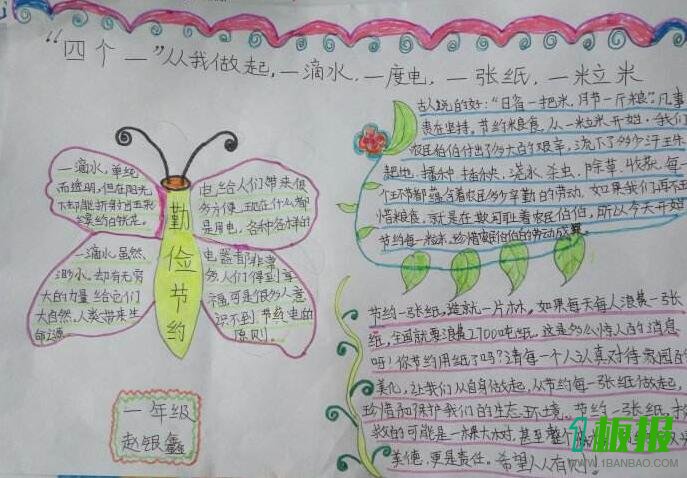 “四个一”从我做起，一滴水，一度电，一张纸，一米立米
一滴水，单纯
而透明，但在阳光
下却能折射出五彩
缤纷的光芒。
一滴水虽然
渺小，却有无穷
大的力量给它们
大自然，人类带来生
命之源
勤俭节约
电给人们带来很
多方便，现在什么都
是用电，各种各样的
电器都非常
多，人们得到幸
福，可是很多人意
识不到节约电的
原则。
一年级
赵银鑫
古人说的好：“日省一把米，月节一斤粮”，凡事
贵在坚持。节约粮食，从一米立米开始，我们
农民伯伯付出了多大的艰辛，流下了多少汗珠
起地、播种、插秧、浇水、杀虫、除草、收获，每一
个环节都蕴含着农民多少辛勤的劳动，如果我们再不珍
惜粮食，就是在欺可耻着农民伯伯，所以今天开始
节约每一粒米，珍惜农民伯伯的劳动成果。
节约一张纸，造就一片林，如果每天每人浪费一张
纸，全国就要浪费2700吨纸，这是多么惊人的消息
呀！你节约用纸了吗？请每一个人认真对待家园的
美化，让我们从自身做起，从节约每一张纸做起，
珍惜和保护我们的生态环境。节约一张纸，拯
救的可能是一棵大树，甚至整个
美德，更是责任。希望人人有则。
1板报
WWW.1BANBAO.COM